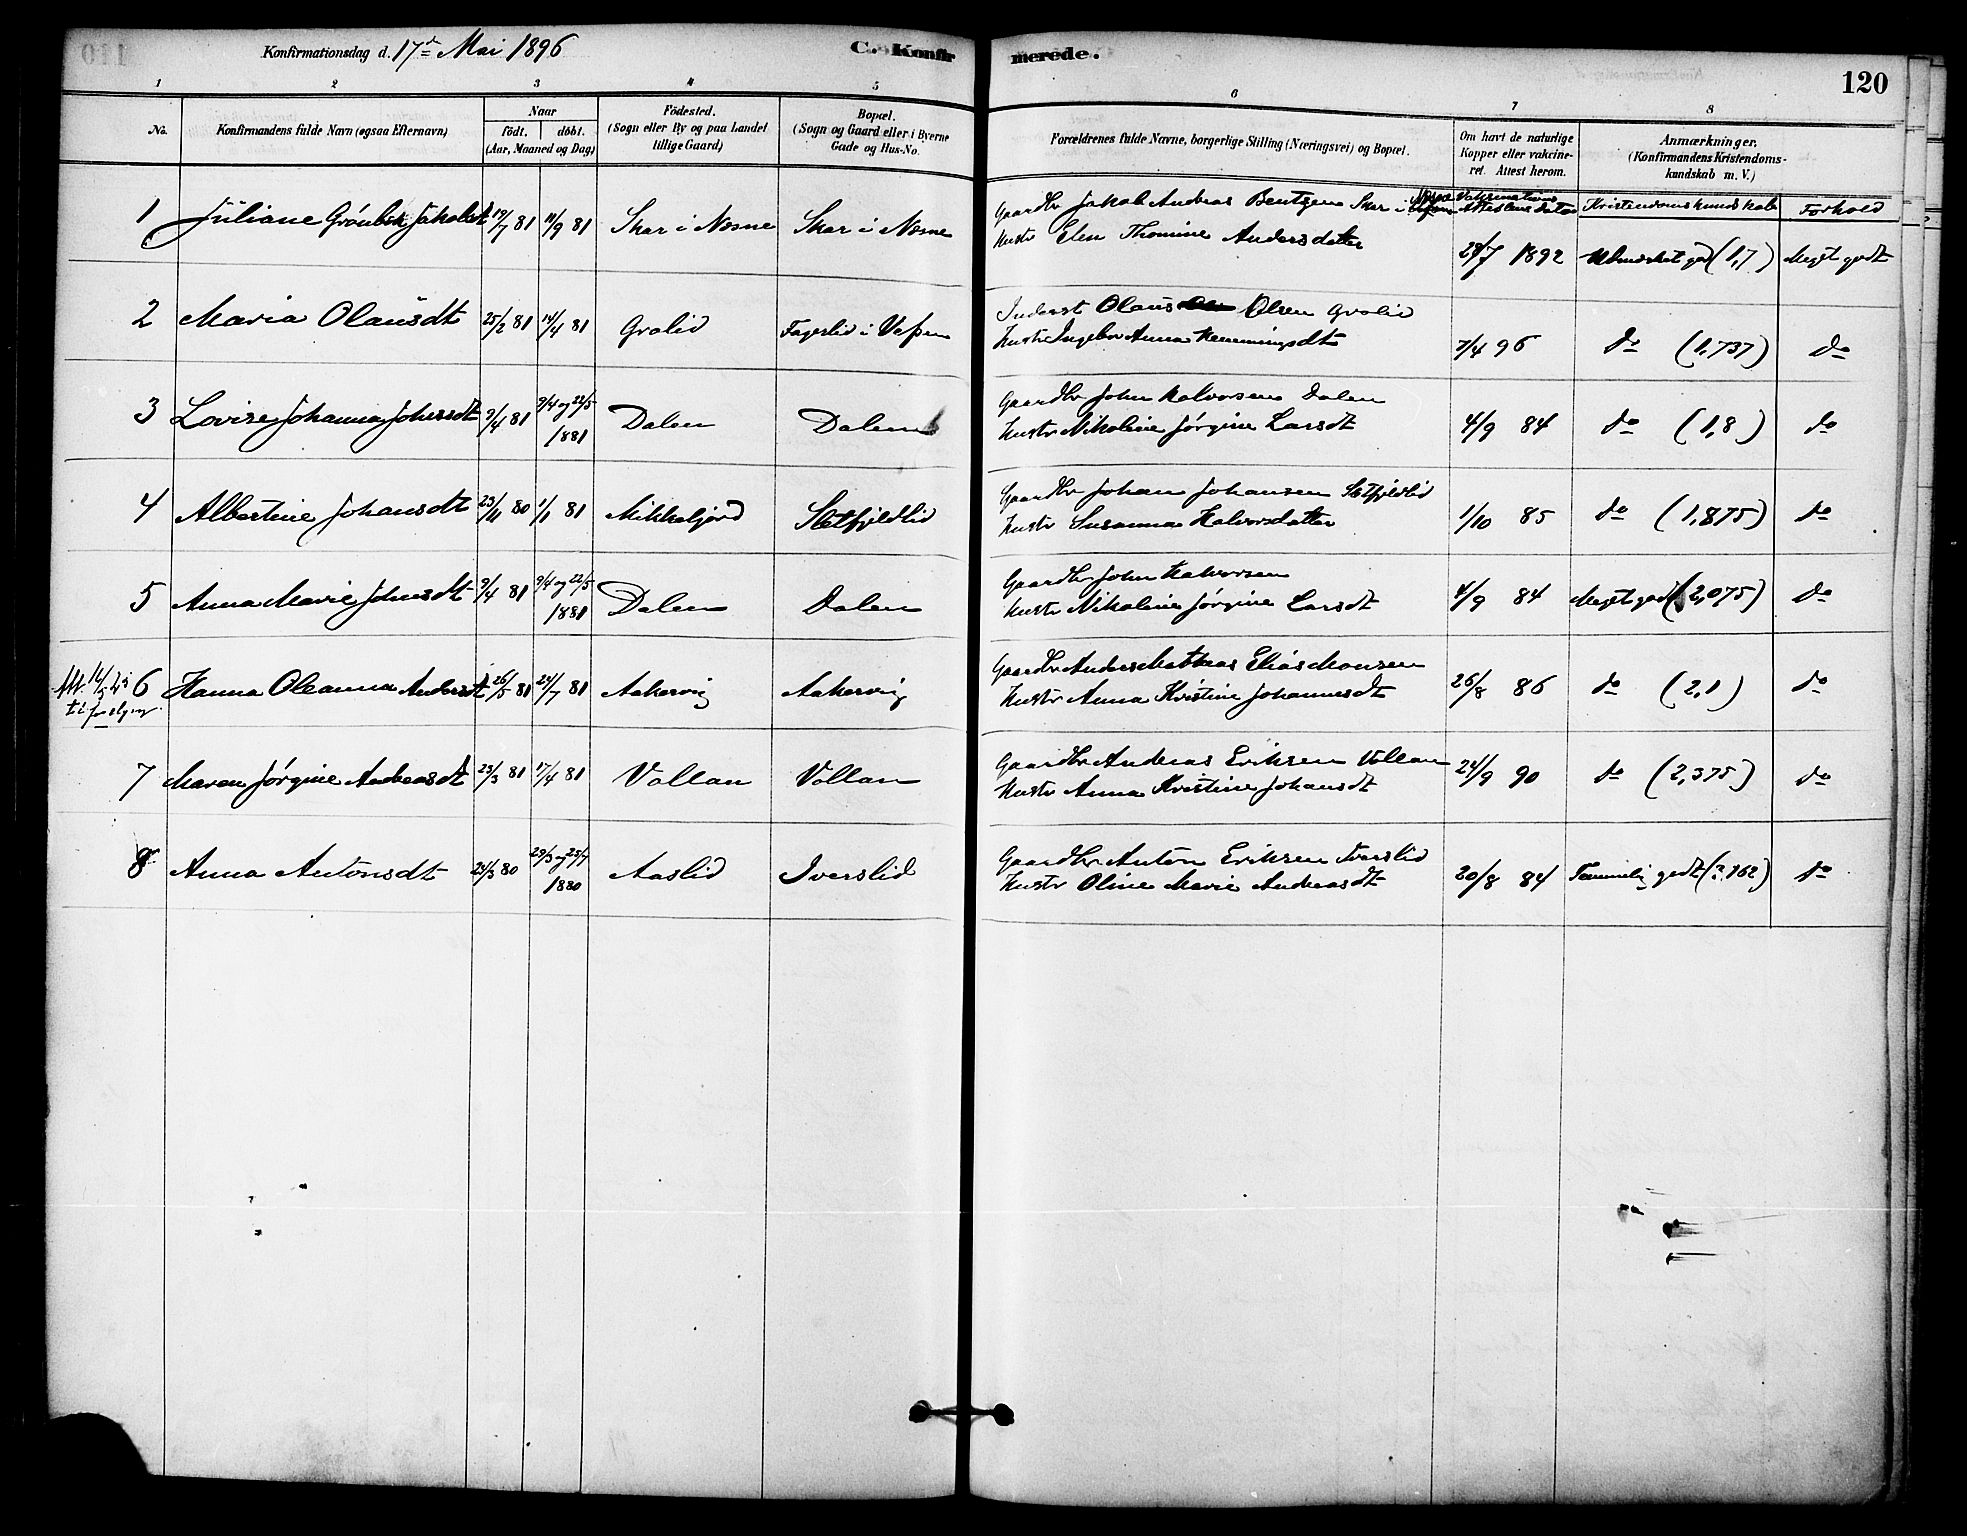 Konfirmationsdag d. 17de Mai 1896
C. Konfir
merede.
120
1 2 3 4 5 6 7 8
No.
Konfirmandens fulde Navn (ogsaa Efternavn)
Naar
födt. döbt.
(Aar, Maaned og Dag)
Födested.
(Sogn eller By og paa Landet
tillige Gaard)
Bopæl.
(Sogn og Gaard eller i Byerne
Gade og Hus-No.
Forældrenes fulde Navne, borgerlige Stilling (Næringsvei) og Bopæl.
Om havt de naturlige
Kopper eller vakcine-
ret. Attest herom.
Anmærkninger.
(Konfirmandens Kristendoms-
kundskab m. V.)
Vaksinations
Attestens Datum Kristendomskundskab Forhold
1 Juliane Grönbek Jakobsdt 19/7 81 11/9 81 Skar i Næsne Skar i Næsne Gaardbr Jakob Andreas Bentzen Skar i
Hustr Elen Thomine Andersdatter 29/7 1892 Udmærket god (1,7) Meget godt
2 Maria Olausdt 25/2 81 14/4 81 Grolid Fagerlid i Vefsen Inderst Olaus Olsen Grolid
Hustr Ingebor Anna Henningsdt 7/4 96 do (1,737) do
3 Lovise Johanna Johnsdt 9/4 81 9/4 og 22/5
1881 Dalen Dalen Gaardbr John Halvorsen Dalen
Hustr Nikoline Jørgine Larsdt 4/9 84 do (1,8) do
4 Albertine Johansdt 23/11 80 1/1 81 Mikkeljord Sletfjeldlid Gaardbr Johan Johansen Sletfjeldlid
Hustr Susanna Halvorsdatter 1/10 85 do (1,875) do
5 Anna Marie Johnsdt 9/4 81 9/4 og 22/5
1881 Dalen Dalen Gaardbr John Halvorsen
Hustr Nikoline Jørgine Larsdt 4/9 84 Meget god (2,075) do
6 Hanna Oleanna Andersdt 26/5 81 24/7 81 Aakervig Aakervig Gaardbr Anders Mathias Elias Monsen
Hustr Anna Kristine Johannesdt 26/8 86 do (2,1) do
7 Maren Jørgine Andreasdt 23/3 81 17/4 81 Vollan Vollan Gaardbr Andreas Eriksen Vollan
Hustr Anna Kristine Johansdt 24/9 90 do (2,375) do
8 Anna Antonsdt 23/3 80 29/3 og 25/7
1880 Aaslid Iverslid Gaardbr Anton Eriksen Iverslid
Hustr Oline Marie Andreasdt 20/8 84 Temmelig godt do